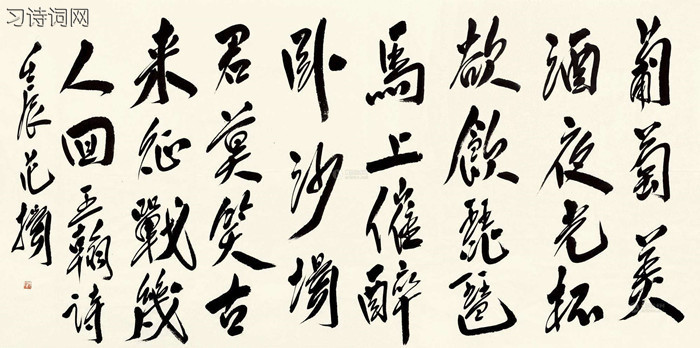 习诗词网
葡萄美
酒夜光杯
欲飲琵琶
馬上催醉
卧沙場
君莫笑古
来征戰幾
人回王翰诗
壬辰范